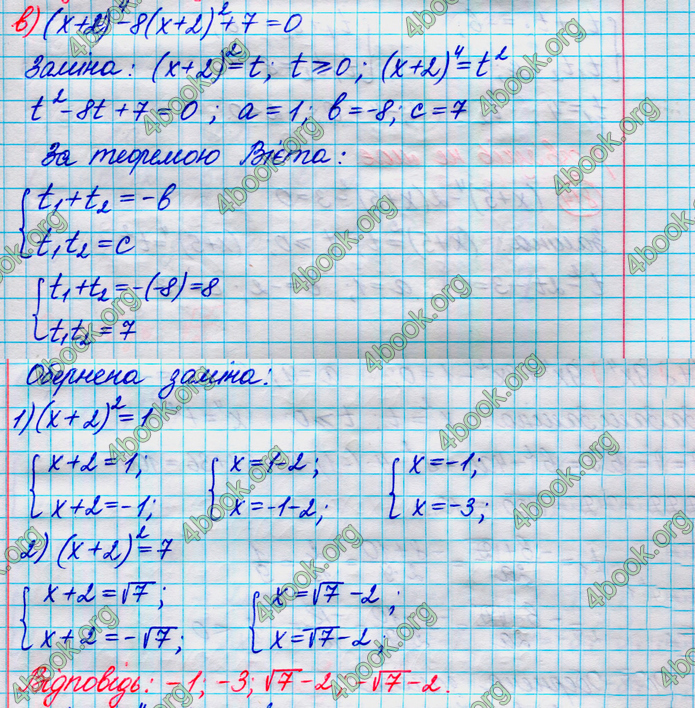 в) (x+2)⁴-8(x+2)²+7=0
Заміна: (x+2)²=t; t⩾0; (x+2)⁴=t²
t²-8t+7=0; a=1; b=-8; c=7
За теоремою Вієта:
{t₁+t₂=-b
t₁t₂=c
{t₁+t₂=-(-8)=8
t₁t₂=7
Обернена заміна:
1) (x+2)²=1
{x+2=1; {x=1-2; {x=-1;
x+2=-1; x=-1-2; x=-3;
2) (x+2)²=7
{x+2=√7; {x=√7-2;
x+2=-√7; x=-√7-2;
Відповідь: -1; -3; √7-2; -√7-2.
4book.org